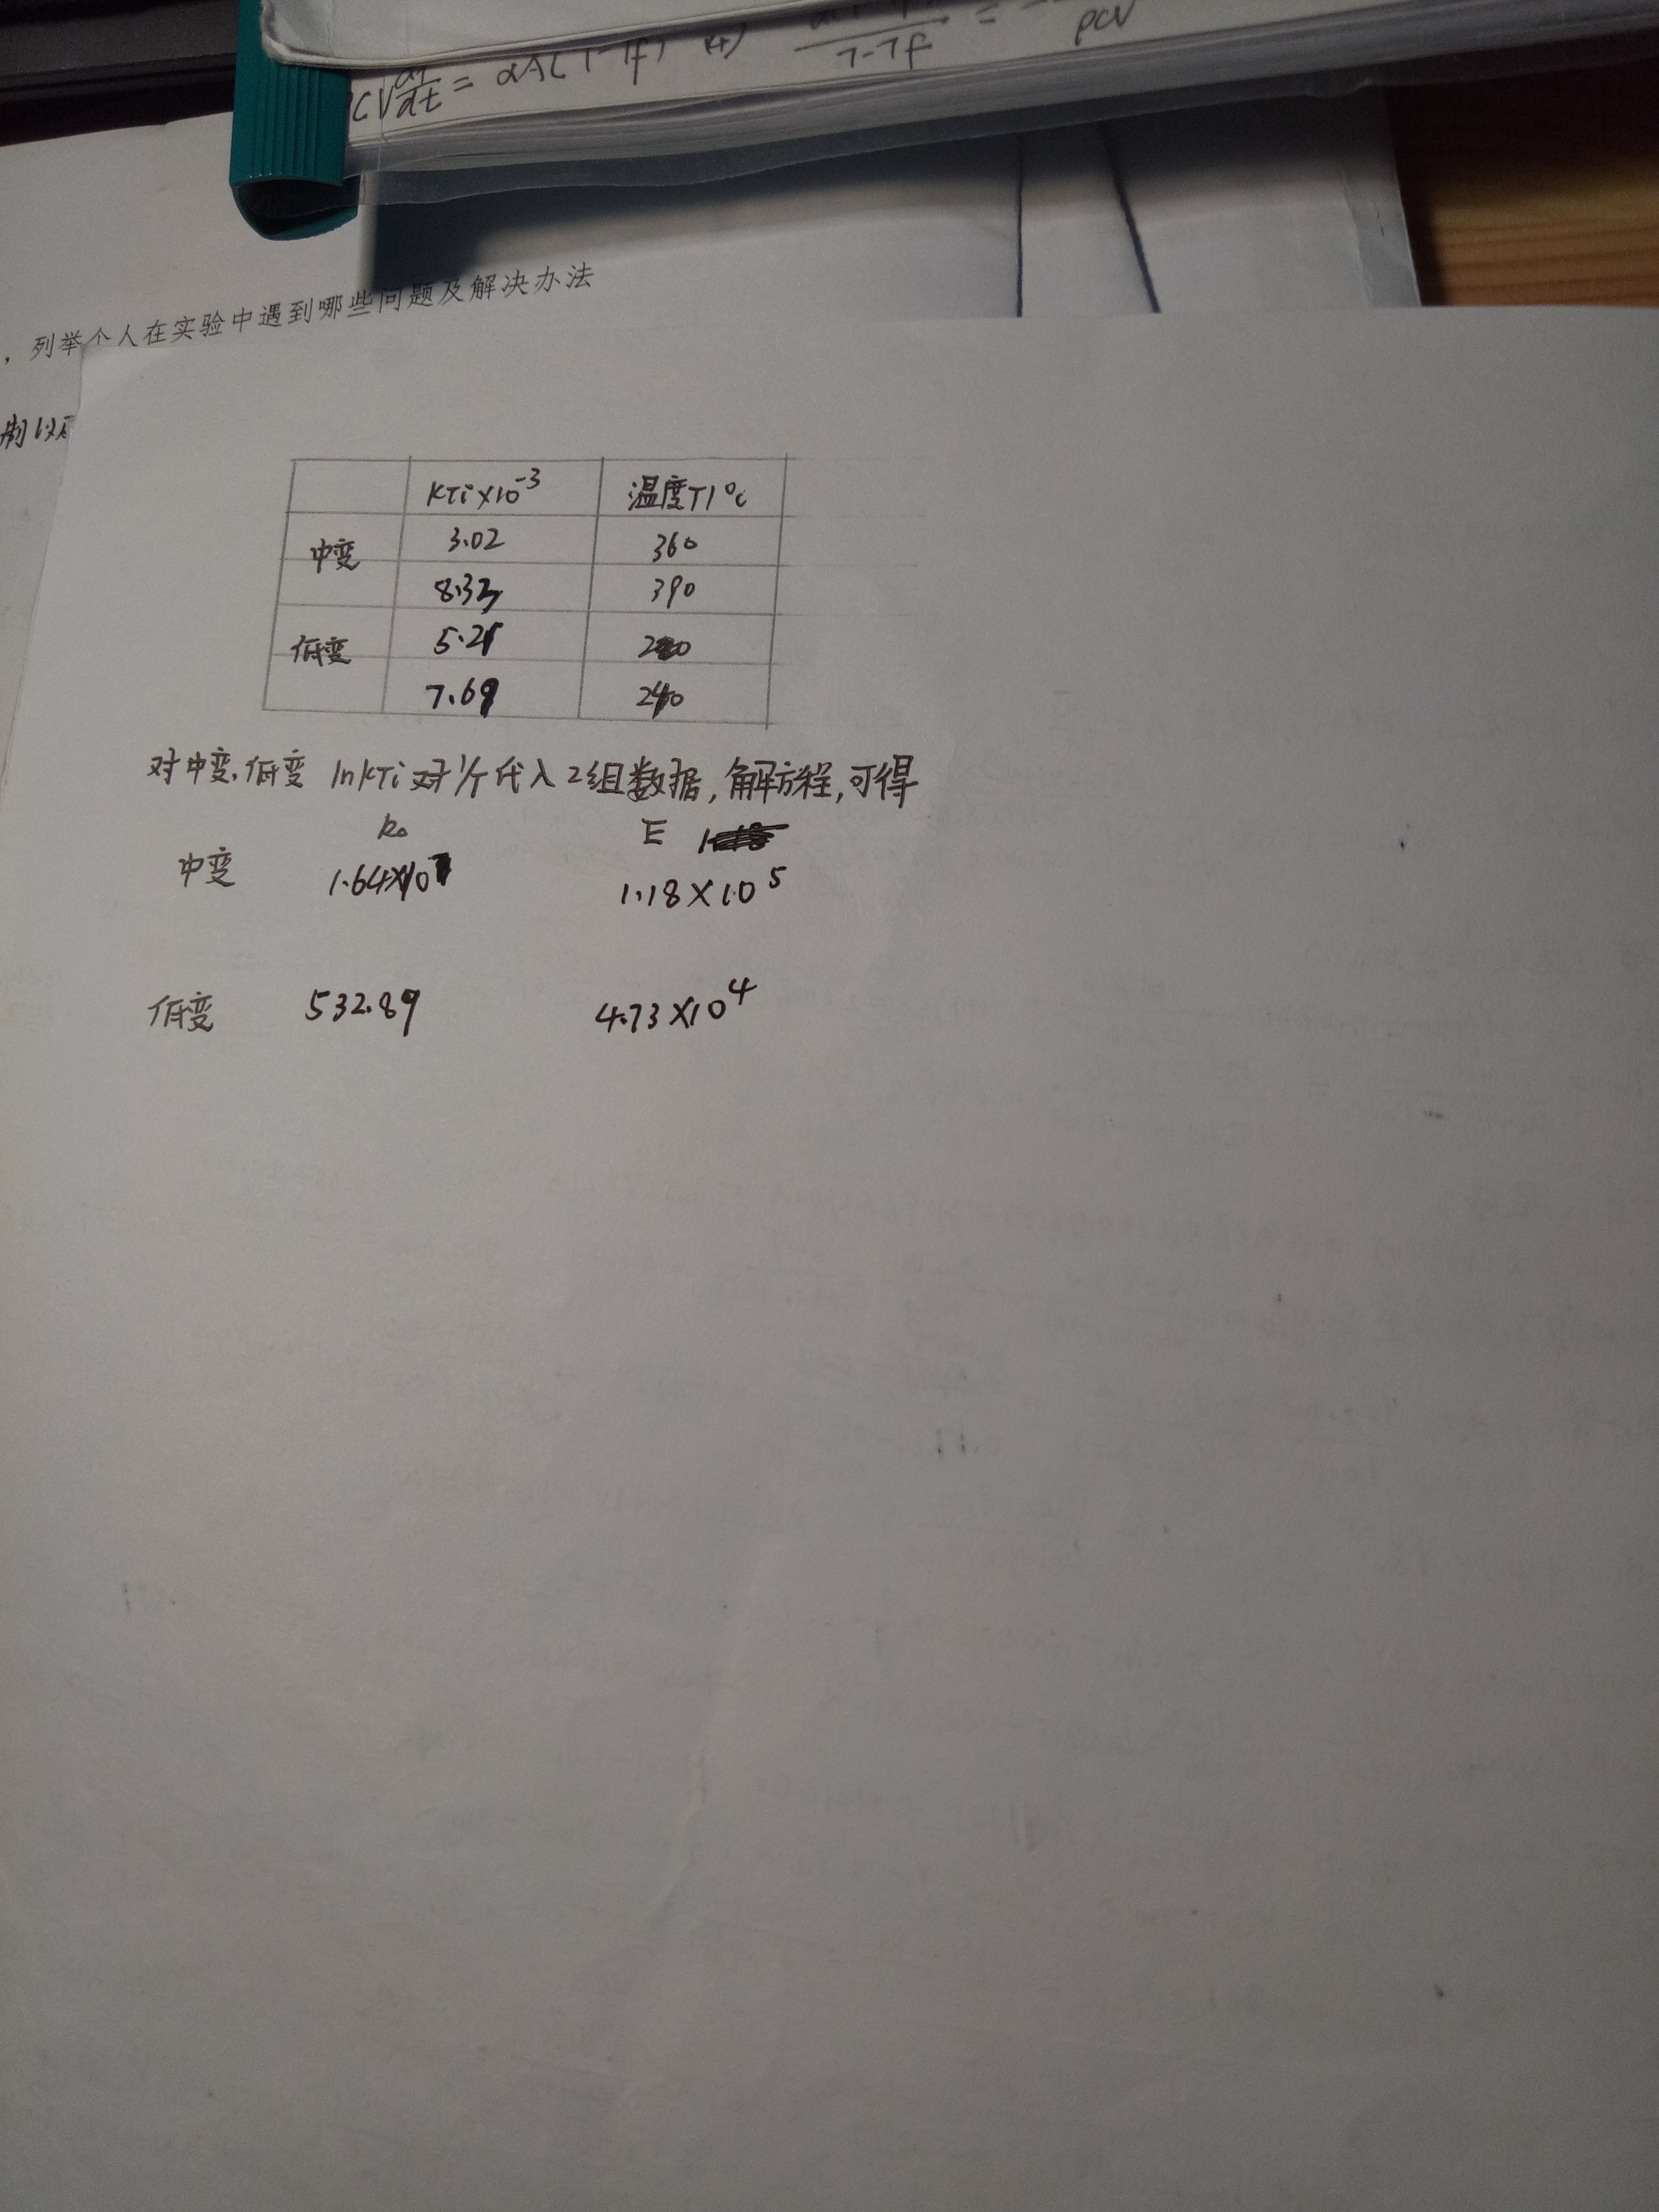 CV dT/dt = αA(T-Tf) (4) T-Tf = ρCV
，列举个人在实验中遇到哪些问题及解决办法
制以
KTi×10⁻³ 温度T/℃
中变 3.02 360
8.33 390
低变 5.21 220
7.69 240
对中变,低变 lnKTi对1/T代入2组数据,解方程,可得
k₀ E
中变 1.64×10⁷ 1.18×10⁵
低变 532.89 4.73×10⁴